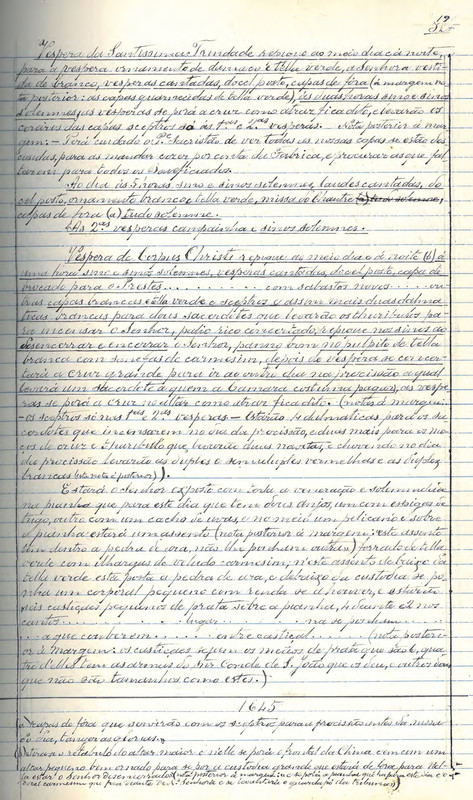 Vespera da Santissima Trindade repique ao meio dia e á noite,
para a vespera ornamento de damasco e tella verde, a Senhora vesti-
da de branco, vesperas cantadas, docel posto, capas de fóra (á margem no-
ta posterior: as capas guarnecidas de tella verde), ás duas horas sino e sinos
solemnes, ás vesperas se porá a cruz como atraz fica dito, e levarão os
das capas sceptros só ás 1as e 2as vesperas. Nota posterior á mar-
gem: - Terá cuidado o Pe Sacristão de ver todas as nossas capas se estão des-
cosidas, para as mandar cozer por conta da Fabrica, e procurar as que fal-
tarem para todos os Beneficiados.
Ao dia ás 5 horas sino e sinos solemnes, laudes cantadas, do-
cel posto, ornamento branco e tella verde, missa do
capas de fóra (a) tudo solemne.
Ás 2as vesperas campainha e sinos solemnes.
Vespera de Corpus Christi repique ao meio dia e de noite (b) á
uma hora sino e sinos solemnes, vesperas cantadas, docel posto, capa de
brocado para o Preste ........ com sebastos novos ....... ou-
tras capas brancas e tella verde e sceptros e assim mais duas dalma-
ticas brancas para dous sacerdotes que levarão os thuribulos pa-
ra incensar o Senhor, palio rico concertado, repique nos sinos ao
desencerrar e encerrar o Senhor, panno bom no pulpito de tella
branca com sanefas de carmesim, depois de vespera se concer-
tará a cruz grande para ir ao outro dia na procissão a qual
levará um sacerdote a quem a Camara costuma pagar, ás vespe-
ras se porá a cruz no altar como atraz fica dito. (nota á margem:
- os sceptros só nas 1as e 2as vesperas - Estarão 4 dalmaticas para os sa-
cerdotes que incensarem no dia da procissão, e duas mais para os mo-
ços da cruz e thuribulo que levarão duas navetas, e chovendo no dia
da procissão levarão as duplex e semiduplex vermelhas e as duplex
brancas (esta nota é posterior)).
Estará o Senhor exposto com toda a veneração e solemnidade
na pianha que para este dia que tem dous anjos, um com espigas de
trigo, outro com um cacho de uvas e no meio um pelicano e sobre
a pianha estará um assento (nota posterior á margem: este assento
tem dentro a pedra de ara, não lhe ponham outra) forrado de tella
verde com ilhargas de veludo carmesim, n'este assento debaixo da
tella verde está posta a pedra de ara, e debaixo da custodia se po-
nha um corporal pequeno com renda se o houver, e estarão
seis castiçaes pequenos de prata sobre a pianha, 4 diante e 2 nos
cantos ........ lugar ........ na se ponham ...
... a que couberem ...... entre castiçal ........ (nota posteri-
or á margem: os castiçaes sejam os meãos de prata que são 6, qua-
tro d'elles tem as armas do Snr Conde de S. João que os deu, e outros dous
que não são tamanhos como estes.)
1645
(a) capas de fóra que servirão com os sceptros para a procissão antes da missa
do dia, tange as glorias.
o retabulo do altar maior e n'elle se porá o frontal da China com um
altar pequeno bem ornado para se pôr a custodia grande que estará de fóra para n'el-
la estar o Senhor desencerrado (nota posterior á margem: